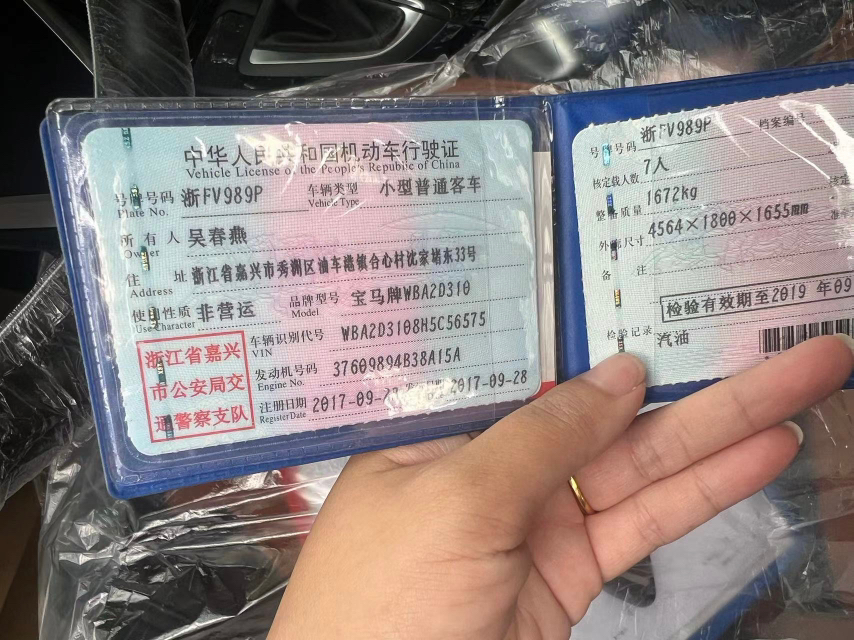 中华人民共和国机动车行驶证
Vehicle License of the People's Republic of China
号牌号码 浙FV989P 车辆类型 小型普通客车
Plate No. Vehicle Type
所有人 吴春燕
Owner
住址 浙江省嘉兴市秀洲区油车港镇合心村沈家埭东33号
Address
使用性质 非营运 品牌型号 宝马牌WBA2D310
Use Character Model
浙江省嘉兴
市公安局交
通警察支队
车辆识别代号 WBA2D3108H5C56575
VIN
发动机号码 37609894B38A15A
Engine No.
注册日期 2017-09-27 发证日期 2017-09-28
Register Date
号牌号码 浙FV989P 档案编号
核定载人数 7人
整备质量 1672kg
外廓尺寸 4564×1800×1655mm
备注
检验有效期至2019 年09
检验记录 汽油